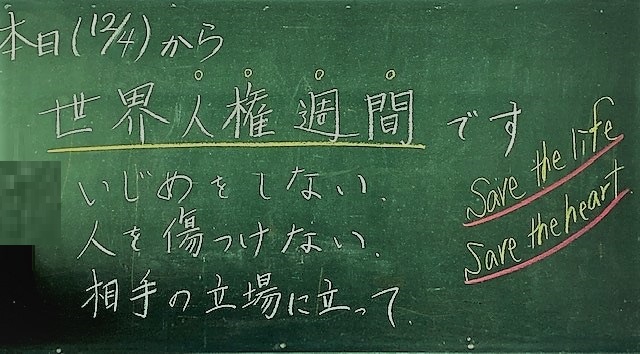 本日(12/4)から
世界人権週間です
いじめをしない、
人を傷つけない、
相手の立場に立って、
Save the life
Save the heart